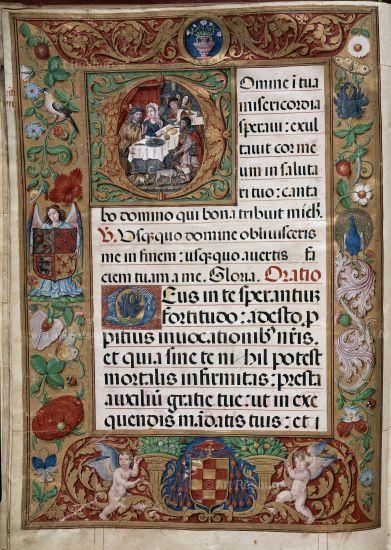 Domine i tua
misericordia
speravi: exul
tavit cor me
um in saluta
ri tuo: canta
bo domino qui bona tribuit mich.
V. Usqzquo domine oblivisceris
me in finem: usqzquo avertis fa
ciem tuam a me. Gloria. Oratio
Deus in te sperantiuz
fortitudo: adesto p
pitius invocationibz nris.
et quia sine te nihil potest
mortalis infirmitas: presta
auxiliuz gratie tue: ut in exe
quendis madatis tuis: et i